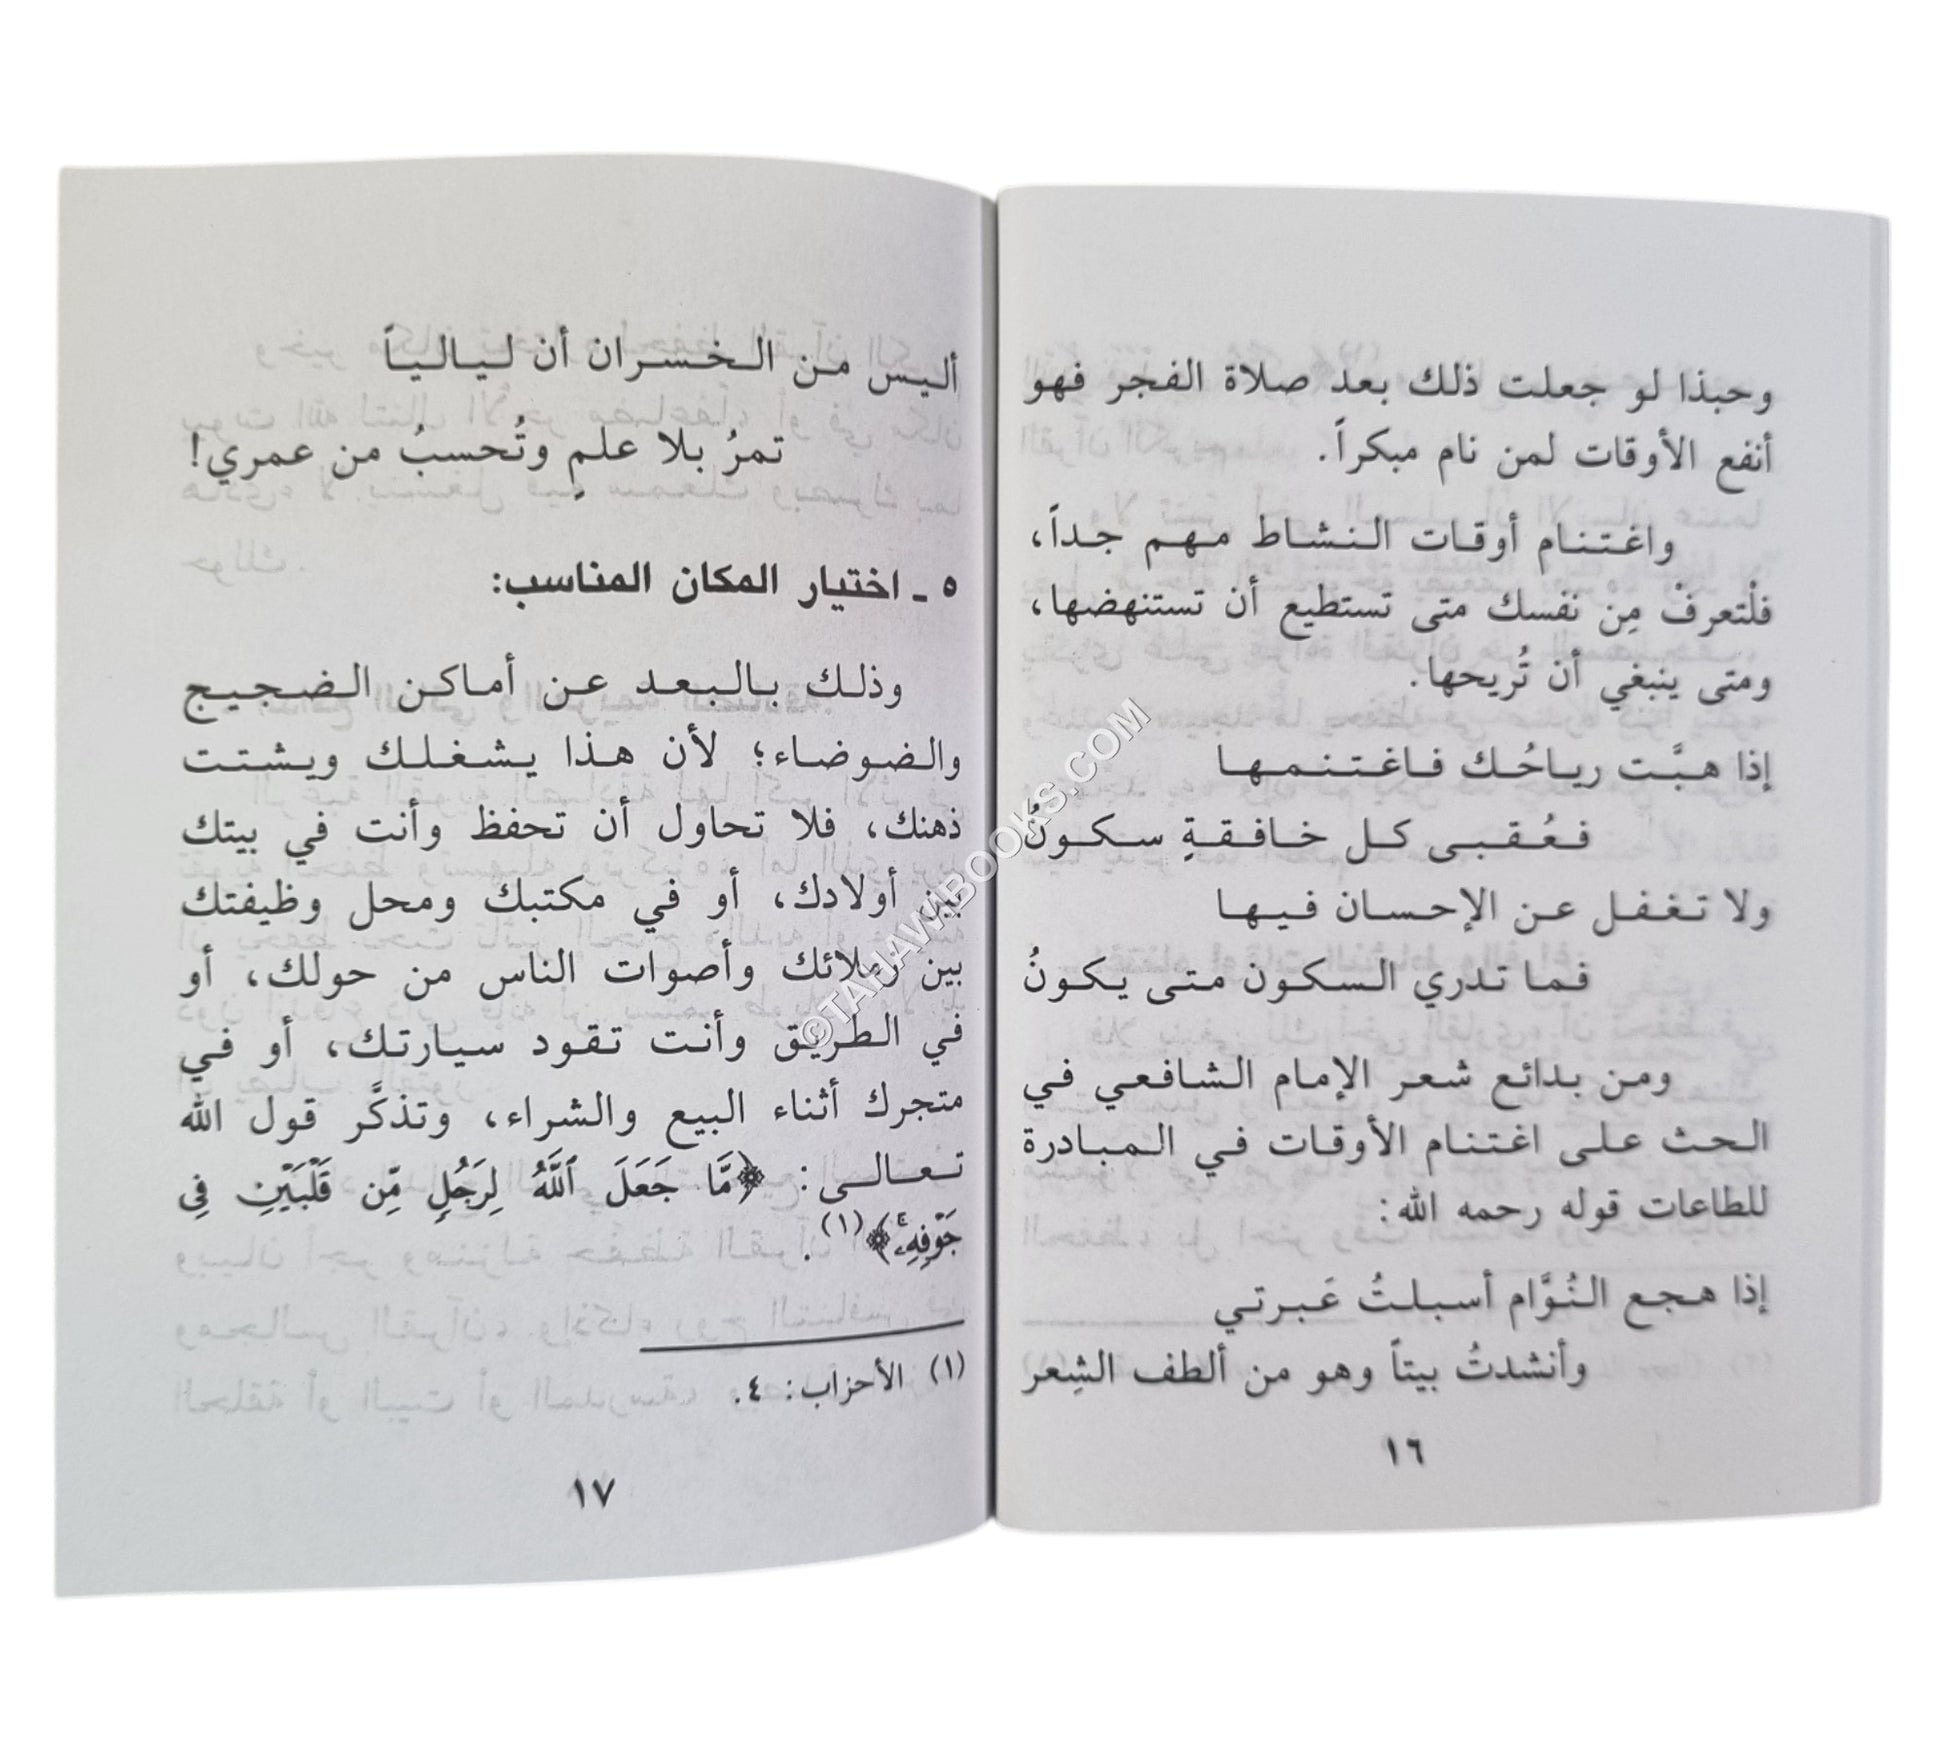 وحبذا لو جعلت ذلك بعد صلاة الفجر فهو
أنفع الأوقات لمن نام مبكراً.
واغتنام أوقات النشاط مهم جداً،
فلْتعرفْ مِن نفسك متى تستطيع أن تستنهضها،
ومتى ينبغي أن تُريحها.
إذا هبَّت رياحُك فاغتنمها
فعُقبى كل خافقةٍ سكونُ
ولا تغفل عن الإحسان فيها
فما تدري السكون متى يكونُ
ومن بدائع شعر الإمام الشافعي في
الحث على اغتنام الأوقات في المبادرة
للطاعات قوله رحمه الله:
إذا هجع النُوَّام أسبلتُ عَبرتي
وأنشدتُ بيتاً وهو من ألطف الشِعر
١٦
أليس من الخسران أن ليالياً
تمرُ بلا علمٍ وتُحسبُ من عمري!
٥ ـ اختيار المكان المناسب:
وذلك بالبعد عن أماكن الضجيج
والضوضاء؛ لأن هذا يشغلك ويشتت
ذهنك، فلا تحاول أن تحفظ وأنت في بيتك
بين أولادك، أو في مكتبك ومحل وظيفتك
بين زملائك وأصوات الناس من حولك، أو
في الطريق وأنت تقود سيارتك، أو في
متجرك أثناء البيع والشراء، وتذكَّر قول الله
تعالى: ﴿مَّا جَعَلَ ٱللَّهُ لِرَجُلٍ مِّن قَلْبَيْنِ فِي
جَوْفِهِۦ﴾(١).
(١) الأحزاب: ٤.
١٧
©TAHAWABOOKS.COM